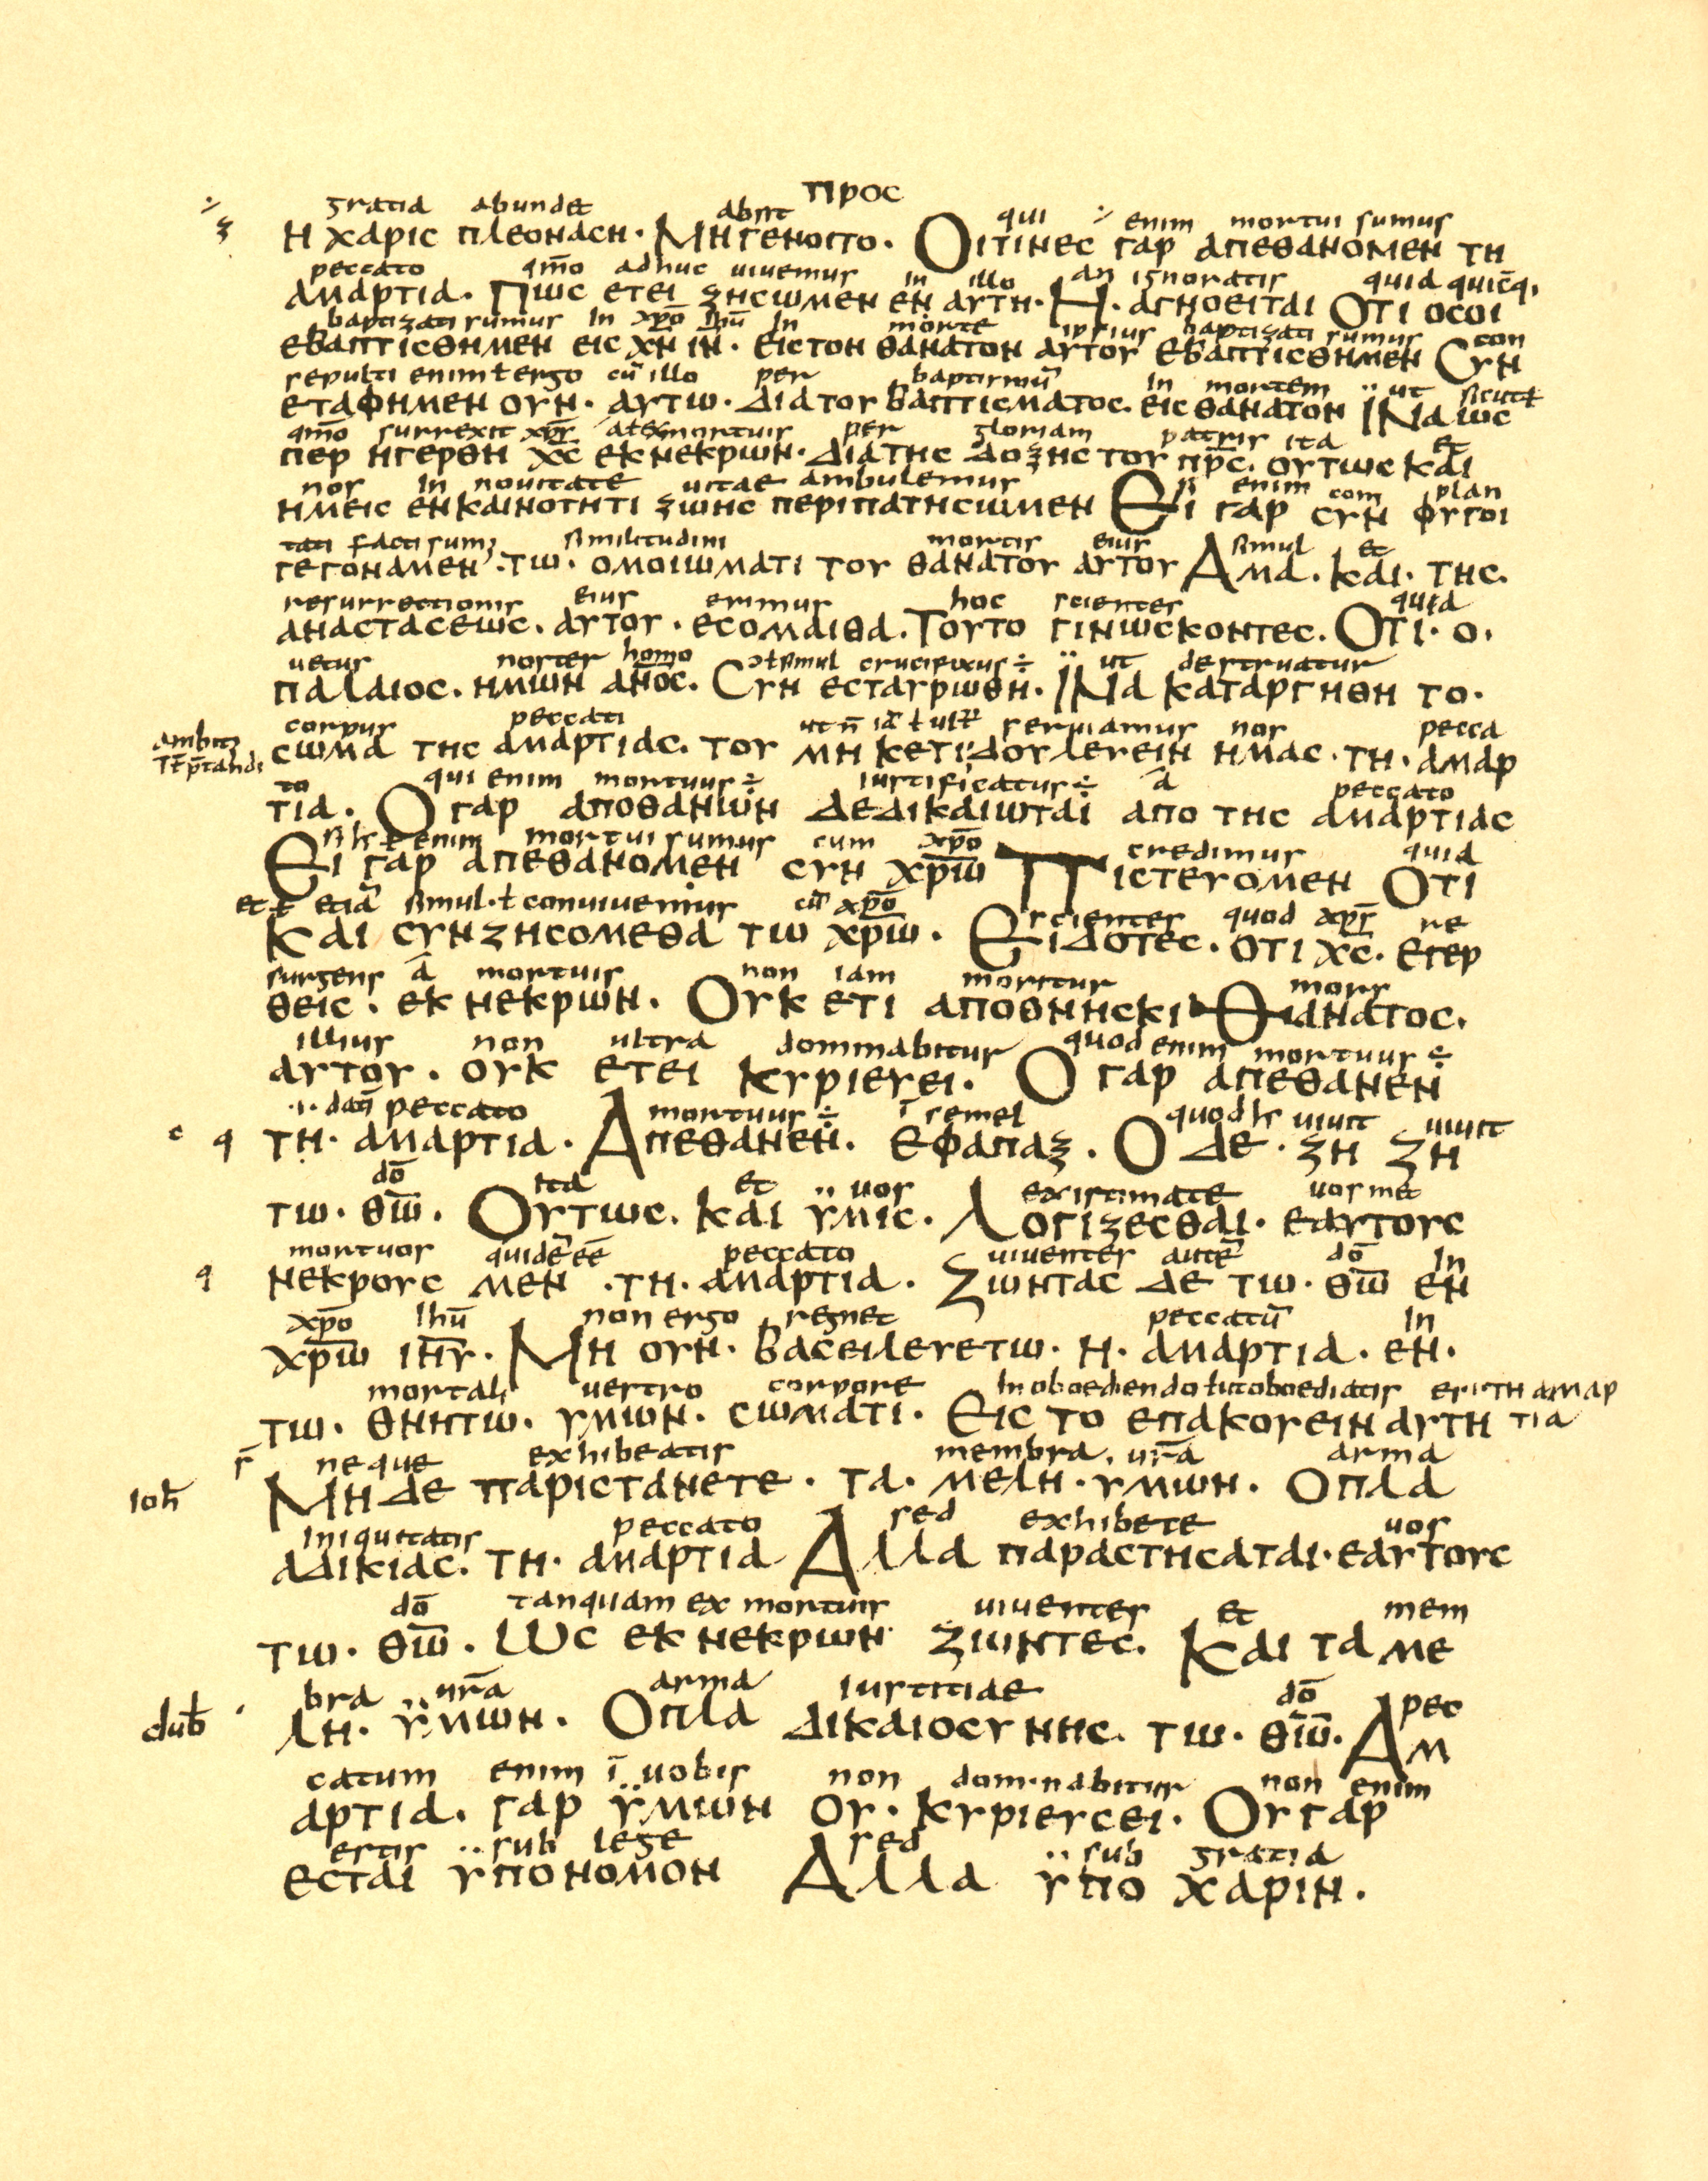 προς
gratia abundet absit qui enim mortui sumus
η χαρις πλεοναση· Μηγενοιτο· Οιτινες γαρ απεθανομεν τη
peccato qmō adhuc uiuemus in illo an ignoratis quia quicq̄;
αμαρτια· Πως ετει ζησωμεν εν αυτη· Η· αγνοειται Οτι οσοι
baptizati sumus In xp̄o Ihū In morte ipsius baptizati sumus con
εβαπτισθημεν εις χ̄ν̄ ῑν̄· εις τον θανατον αυτου εβαπτισθημεν Cυν
sepulti enim ł ergo cū illo per baptismū In mortem ut sicut ł
εταφημεν ουν· αυτω· Δια του βαπτισματος· εις θανατον Ϊνα ως
qmō surrexit xp̄s a ł ex mortuis per gloriam patris ita et
περ ηγερθη χ̄ς̄ εκ νεκρων· Δια της Δοξης του π̄ρ̄ς· ουτως και
nos In nouitate uitae ambulemus si enim com plan
ημεις εν καινοτητι ζωης περιπατησωμεν Ει γαρ συν φυτοι
tati facti sum; similitudini mortis eius simul et
γεγοναμεν· τω· ομοιωματι του θανατου αυτου Αμα· και· της·
resurrectionis eius erimus hoc scientes quia
αναστασεως· αυτου· εσομαισθα· Τουτο γινωσκοντες· Οτι· ο·
uetus noster homo ɔ ł simul crucifixus ÷ ut destruatur
παλαιος· ημων αν̄ος· Cυν εσταυρωθη· Ϊνα καταργηθη το·
corpus peccati ut n̄ iā ł ult̄ seruiamus nos pecca
σωμα της αμαρτιας· του μη κετι Δουλευειν ημας· τη· αμαρ
to qui enim mortuus ÷ iustificatus ÷ ā peccato
τια· Ο γαρ αποθανων Δεδικαιωται απο της αμαρτιας
si hs ł enim mortui sumus cum xp̄o credimus quia
Ει γαρ απεθανομεν συν χρ̄ω Πιστευομεν Οτι
et ł etiā simul· ł conuiuemus cū xp̄o scientes quod xp̄s re
Και συνζησομεθα τω χρ̄ω· Ειδοτες· οτι χ̄ς· εγερ
surgens ā mortuis non iam moritur mors
θεις· εκ νεκρων· Ουκ ετι αποθνησκι Θανατος·
illius non ultra dominabitur quod enim mortuus ÷
αυτου· ουκ ετει κυριευει· Ο γαρ απεθανεν
peccato mortuus ÷ semel quod hs uiuit uiuit
τη· αμαρτια· Απεθανεν· εφαπαξ· Ο Δε· ζη ζη
dō ita et uos existimate uosmet
τω· θ̄ω̄· Ουτως· και ϋμις· Λογιζεσθαι· εαυτους
mortuos quidē eē peccato uiuentes autē dō In
νεκρους μεν ·τη· αμαρτια· Ζωντας Δε τω· θ̄ω̄ εν
xp̄o Ihū non ergo regnet peccatū In
χρ̄ω ιη̄υ· Μη ουν· βασειλευετω· η· αμαρτια· εν·
mortali uestro corpore In oboediendo ł ut oboediatis ei· τη αμαρ
τω· θνητω· υμων· σωματι· Εις το επακουειν αυτη τια
neque exhibeatis membra ur̄a arma
Ioh̄ Μη Δε παριστανετε· τα· μελη· υμων· Οπλα
iniquitatis peccato sed exhibete uos
αδικιας· τη· αμαρτια Αλλα παραστησαται· εαυτους
dō tanquam ex mortuis uiuentes et mem
τω· θ̄ω̄· Ως εκ νεκρων ζωντες· Και τα με
bra ur̄a arma iustitiae dō pec
dub̄ λη· ϋμων· Οπλα Δικαιοσυνης· τω· θ̄ω̄· Αμ
catum enim uobis non dominabitur non enim
αρτια· γαρ ϋμων ου· κυριευσει· Ου γαρ
estis sub lege sed sub gratia
εσται ϋπο νομον Αλλα ϋπο χαριν·